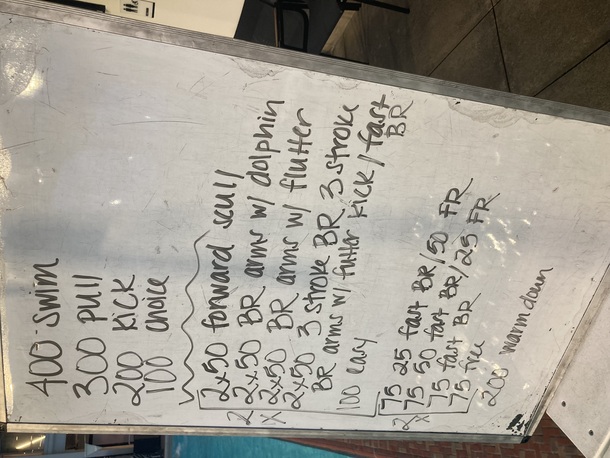 400 swim
300 pull
200 kick
100 choice
2x50 forward scull
2x50 BR arms w/ dolphin
2x50 BR arms w/ flutter
2x50 3 stroke BR 3 stroke
BR arms w/ flutter kick / fast
BR
2x
100 easy
75 25 fast BR/50 FR
75 50 fast BR/25 FR
75 fast BR
75 free
2x
200 warm down